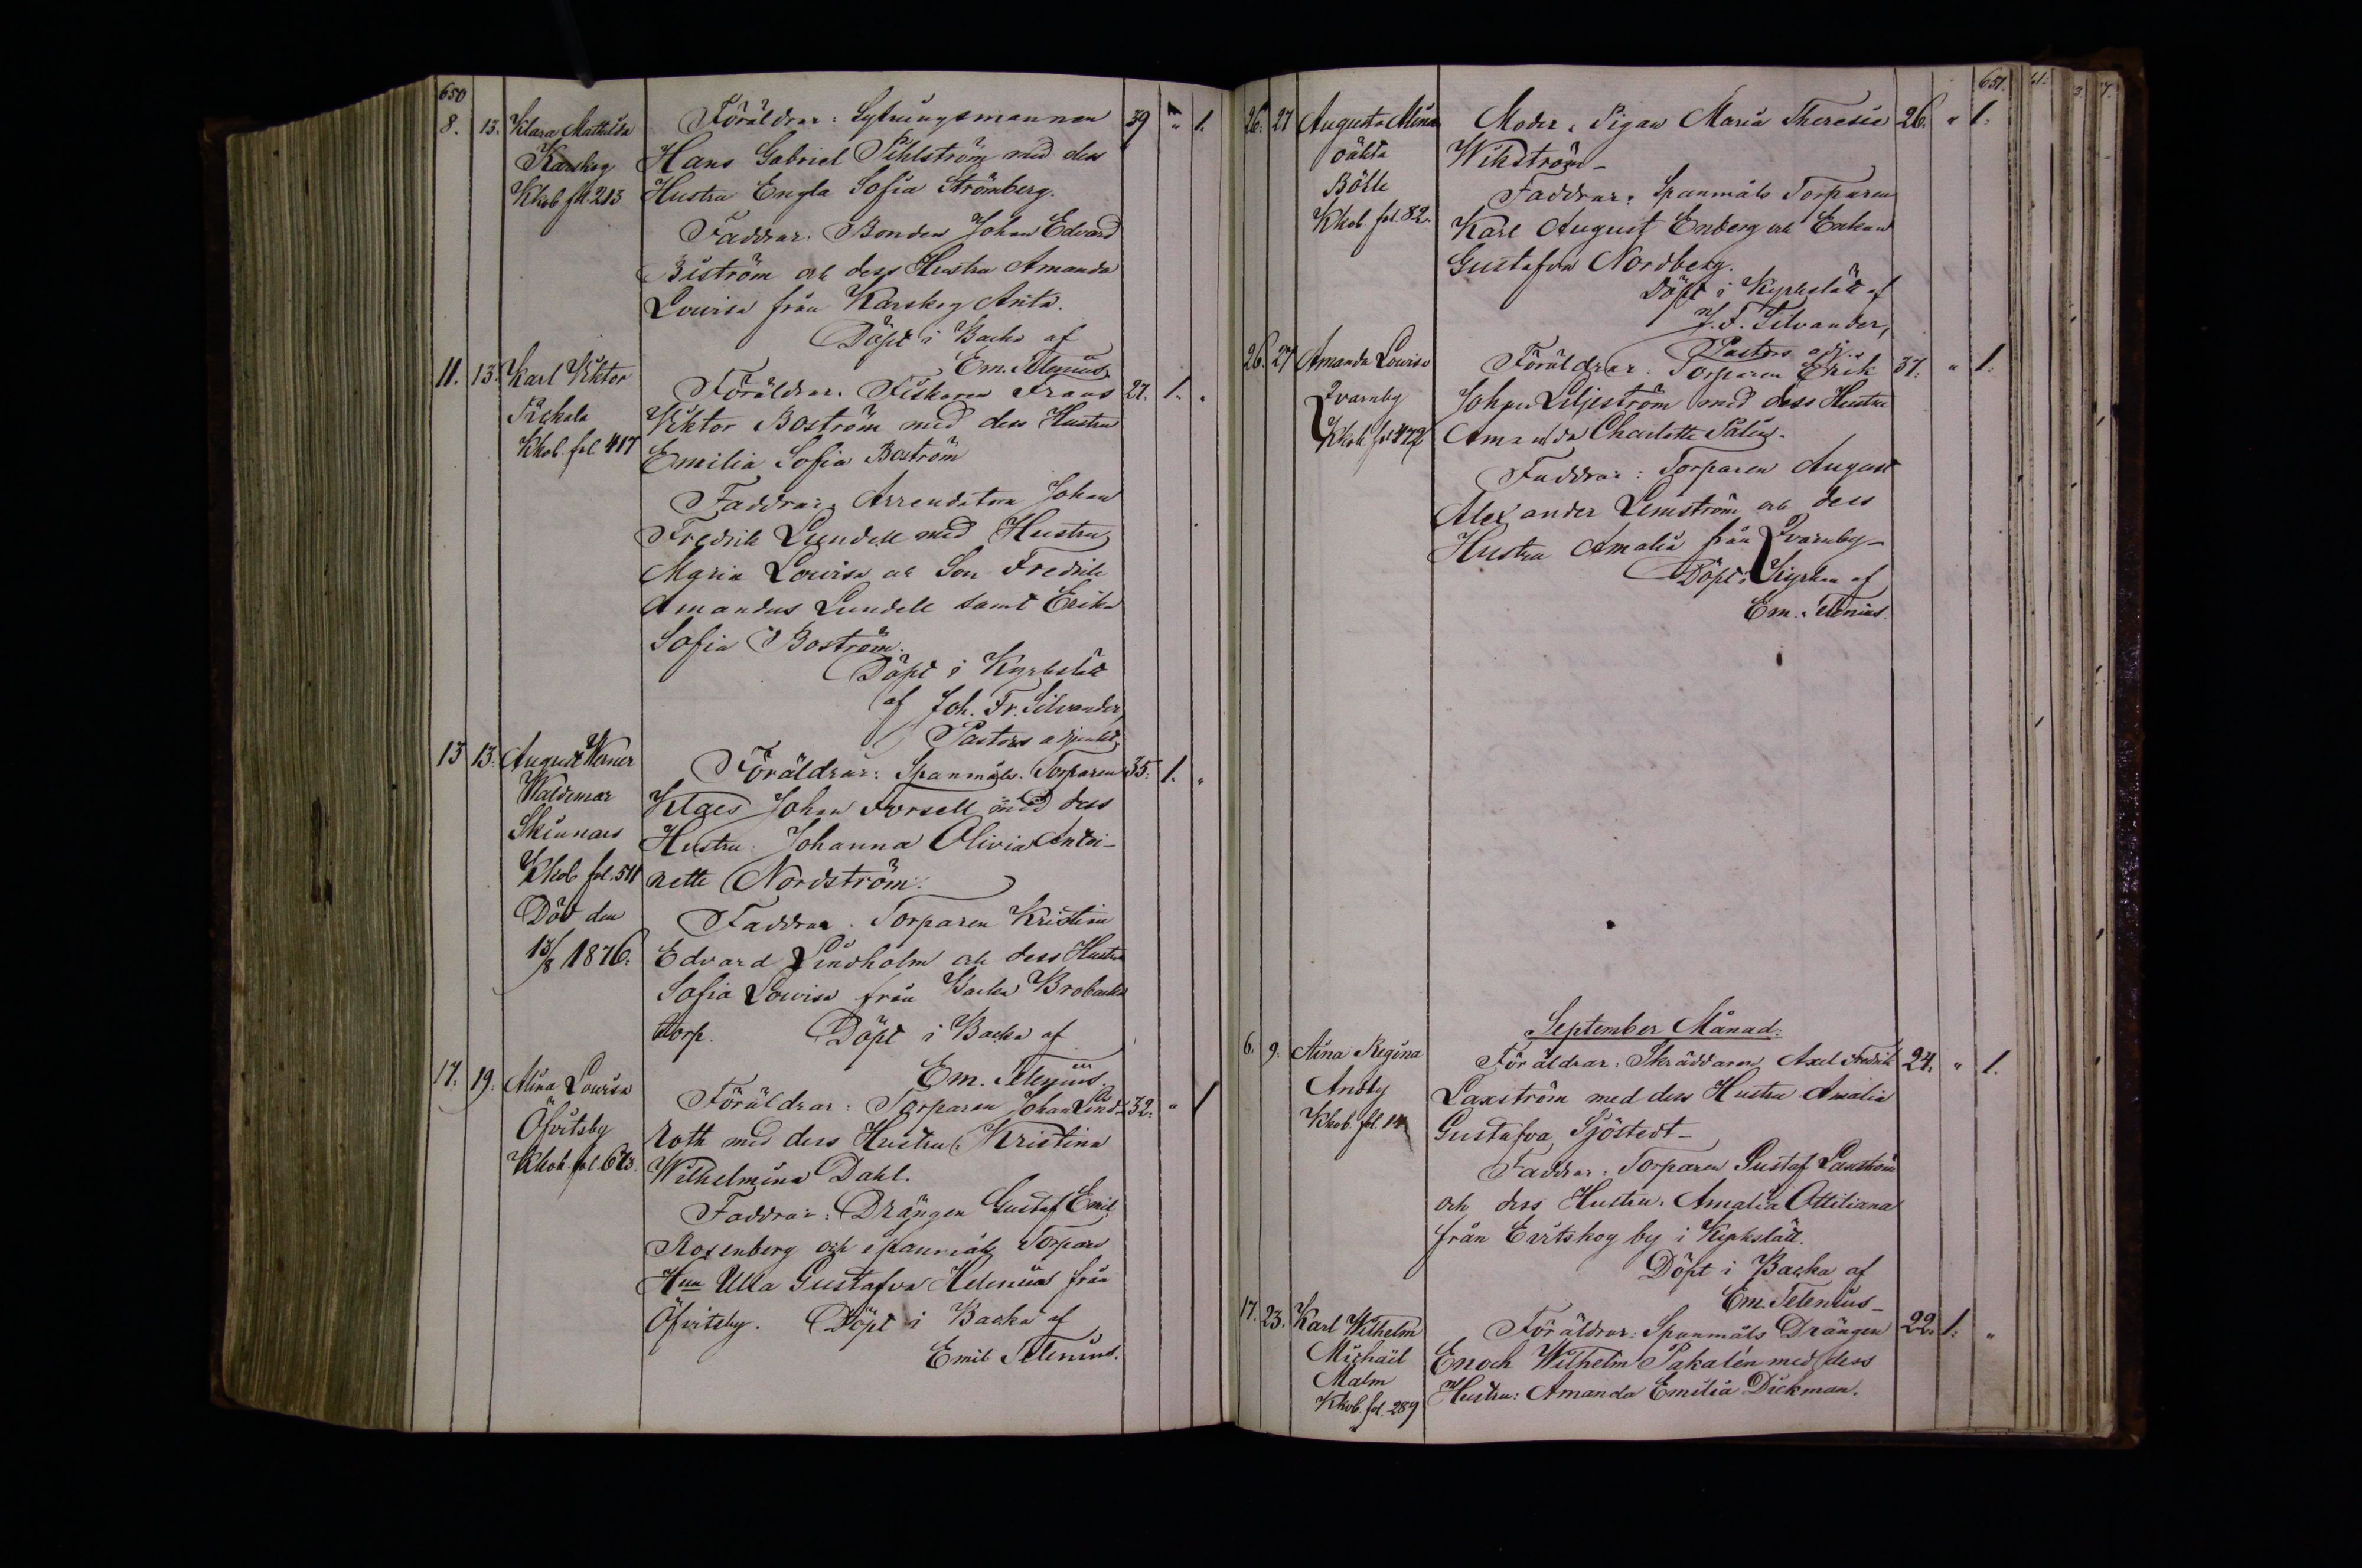 650
8. 13. Klara Mathilda
Karskog
Kkob fol. 213
Föräldrar: Sytningsmannen 39 " 1.
Hans Gabriel Pihlström med dess
Hustru Engla Sofia Strömberg.
Faddrar. Bonden Johan Edvard
Biström och dess Hustru Amanda
Lovisa från Karskog Anta.
Döpt i Backa af
Em. Telenius
11. 13. Karl Viktor
Pickala
Kkob. fol. 417
Föräldrar. Fiskaren Frans 27. 1. "
Viktor Boström med dess Hustru
Emilia Sofia Boström
Faddrar. Arrendatorn Johan
Fredrik Lundell med Hustru
Maria Lovisa och Son Fredrik
Amandus Lundell samt Erika
Sofia Boström.
Döpt i Kyrkslätt
af Joh. Fr. Silvander,
Pastors adjunkt.
13 13. August Werner
Waldemar
Skinnars
Kkob fol. 511
Död den
13/8 1876.
Föräldrar: Spanmåls. Torparen 35. 1. "
Klaes Johan Forsell med dess
Hustru: Johanna Olivia Antoi-
nette Nordström.
Faddrar. Torparen Kristian
Edvard Lindholm och dess Hustru
Sofia Lovisa från Backa Brobacka
torp. Döpt i Backa af
Em. Telenius.
17. 19. Alina Lovisa
Öfvitsby
Kkob. fol. 673.
Föräldrar: Torparen Johan Lind- 32. " 1
roth med dess Hustru: Kristina
Wilhelmina Dahl.
Faddrar: Drängen Gustaf Emil
Rosenberg och spanmåls Torpare
Hun Ulla Gustafva Helenius från
Öfvitsby. Döpt i Backa af
Emil Telenius.
651.
26. 27 Augusta Alina
oäkta
Bölle
Kkob fol. 82.
Moder, Pigan Maria Theresie 26. " 1.
Wikström-
Faddrar. Spanmåls Torparen
Karl August Enberg och Enkan
Gustafva Nordberg.
Döpt i Kyrkslätt af
J. F. Silvander,
Pastors adj.
26. 27 Amanda Lovisa
Qvarnby
Kkob fol 472
Föräldrar. Torparen Erik 37. " 1.
Johan Liljeström med dess Hustru
Amanda Charlotte Palin.
Faddrar: Torparen August
Alexander Lemström och dess
Hustru Amalia från Qvarnby-
Döpt i Kyrkan af
Em. Telenius.
September Månad.
6. 9. Alina Regina
Andby
Kkob. fol. 14
Föräldrar: Skräddaren Axel Fredrik 24. " 1.
Laxström med dess Hustru Amalia
Gustafva Sjöstedt-
Faddrar: Torparen Gustaf Laxström
och dess Hustru. Amalia Ottiliana
från Evitskog by i Kyrkslätt.
Döpt i Backa af
Em. Telenius-
17. 23. Karl Wilhelm
Michael
Malm
Kkob. fol. 289
Föräldrar: Spanmåls Drängen 22. 1. "
Enoch Wilhelm Pakalén med dess
Hustru: Amanda Emilia Dickman.